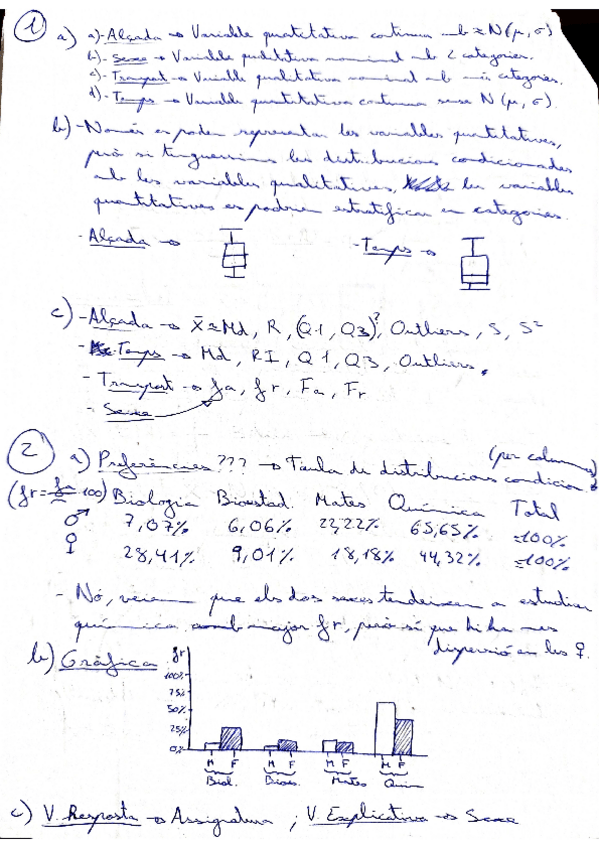 1
a) a)- Alçada → Variable quantitativa contínua amb ≈ N(μ, σ)
b)- Sexe → Variable qualitativa nominal amb 2 categories.
c)- Transport → Variable qualitativa nominal amb més categories.
d)- Temps → Variable quantitativa contínua sense N(μ, σ).
b) - Només es poden representar les variables quantitatives,
però si tinguessim les distribucions condicionades
amb les variables qualitatives, les variables
quantitatives es podrien estratificar en categories.
- Alçada → - Temps →
c) - Alçada → x̄ ≈ Md, R, (Q1, Q3)?, Outliers, S, S²
- Temps → Md, RI, Q1, Q3, Outliers.
- Transport → fa, fr, Fa, Fr
- Sexe
2
(per columnes)
a) Preferències ??? → Taula de distribucions condicion.
(fr = fa 100) Biologia Bioestad. Mates Química Total
♂ 7,07% 6,06% 22,22% 65,65% =100%
♀ 28,41% 9,01% 18,18% 44,32% =100%
- No, veiem que els dos sexes tendeixen a estudiar
química amb major fr, però sí que hi ha més
dispersió en les ♀.
b) Gràfica fr
100%
75%
50%
25%
0%
M F M F M F M F
Biol. Bioes. Mates Quím
c) V. Resposta → Assignatura ; V. Explicativa → Sexe